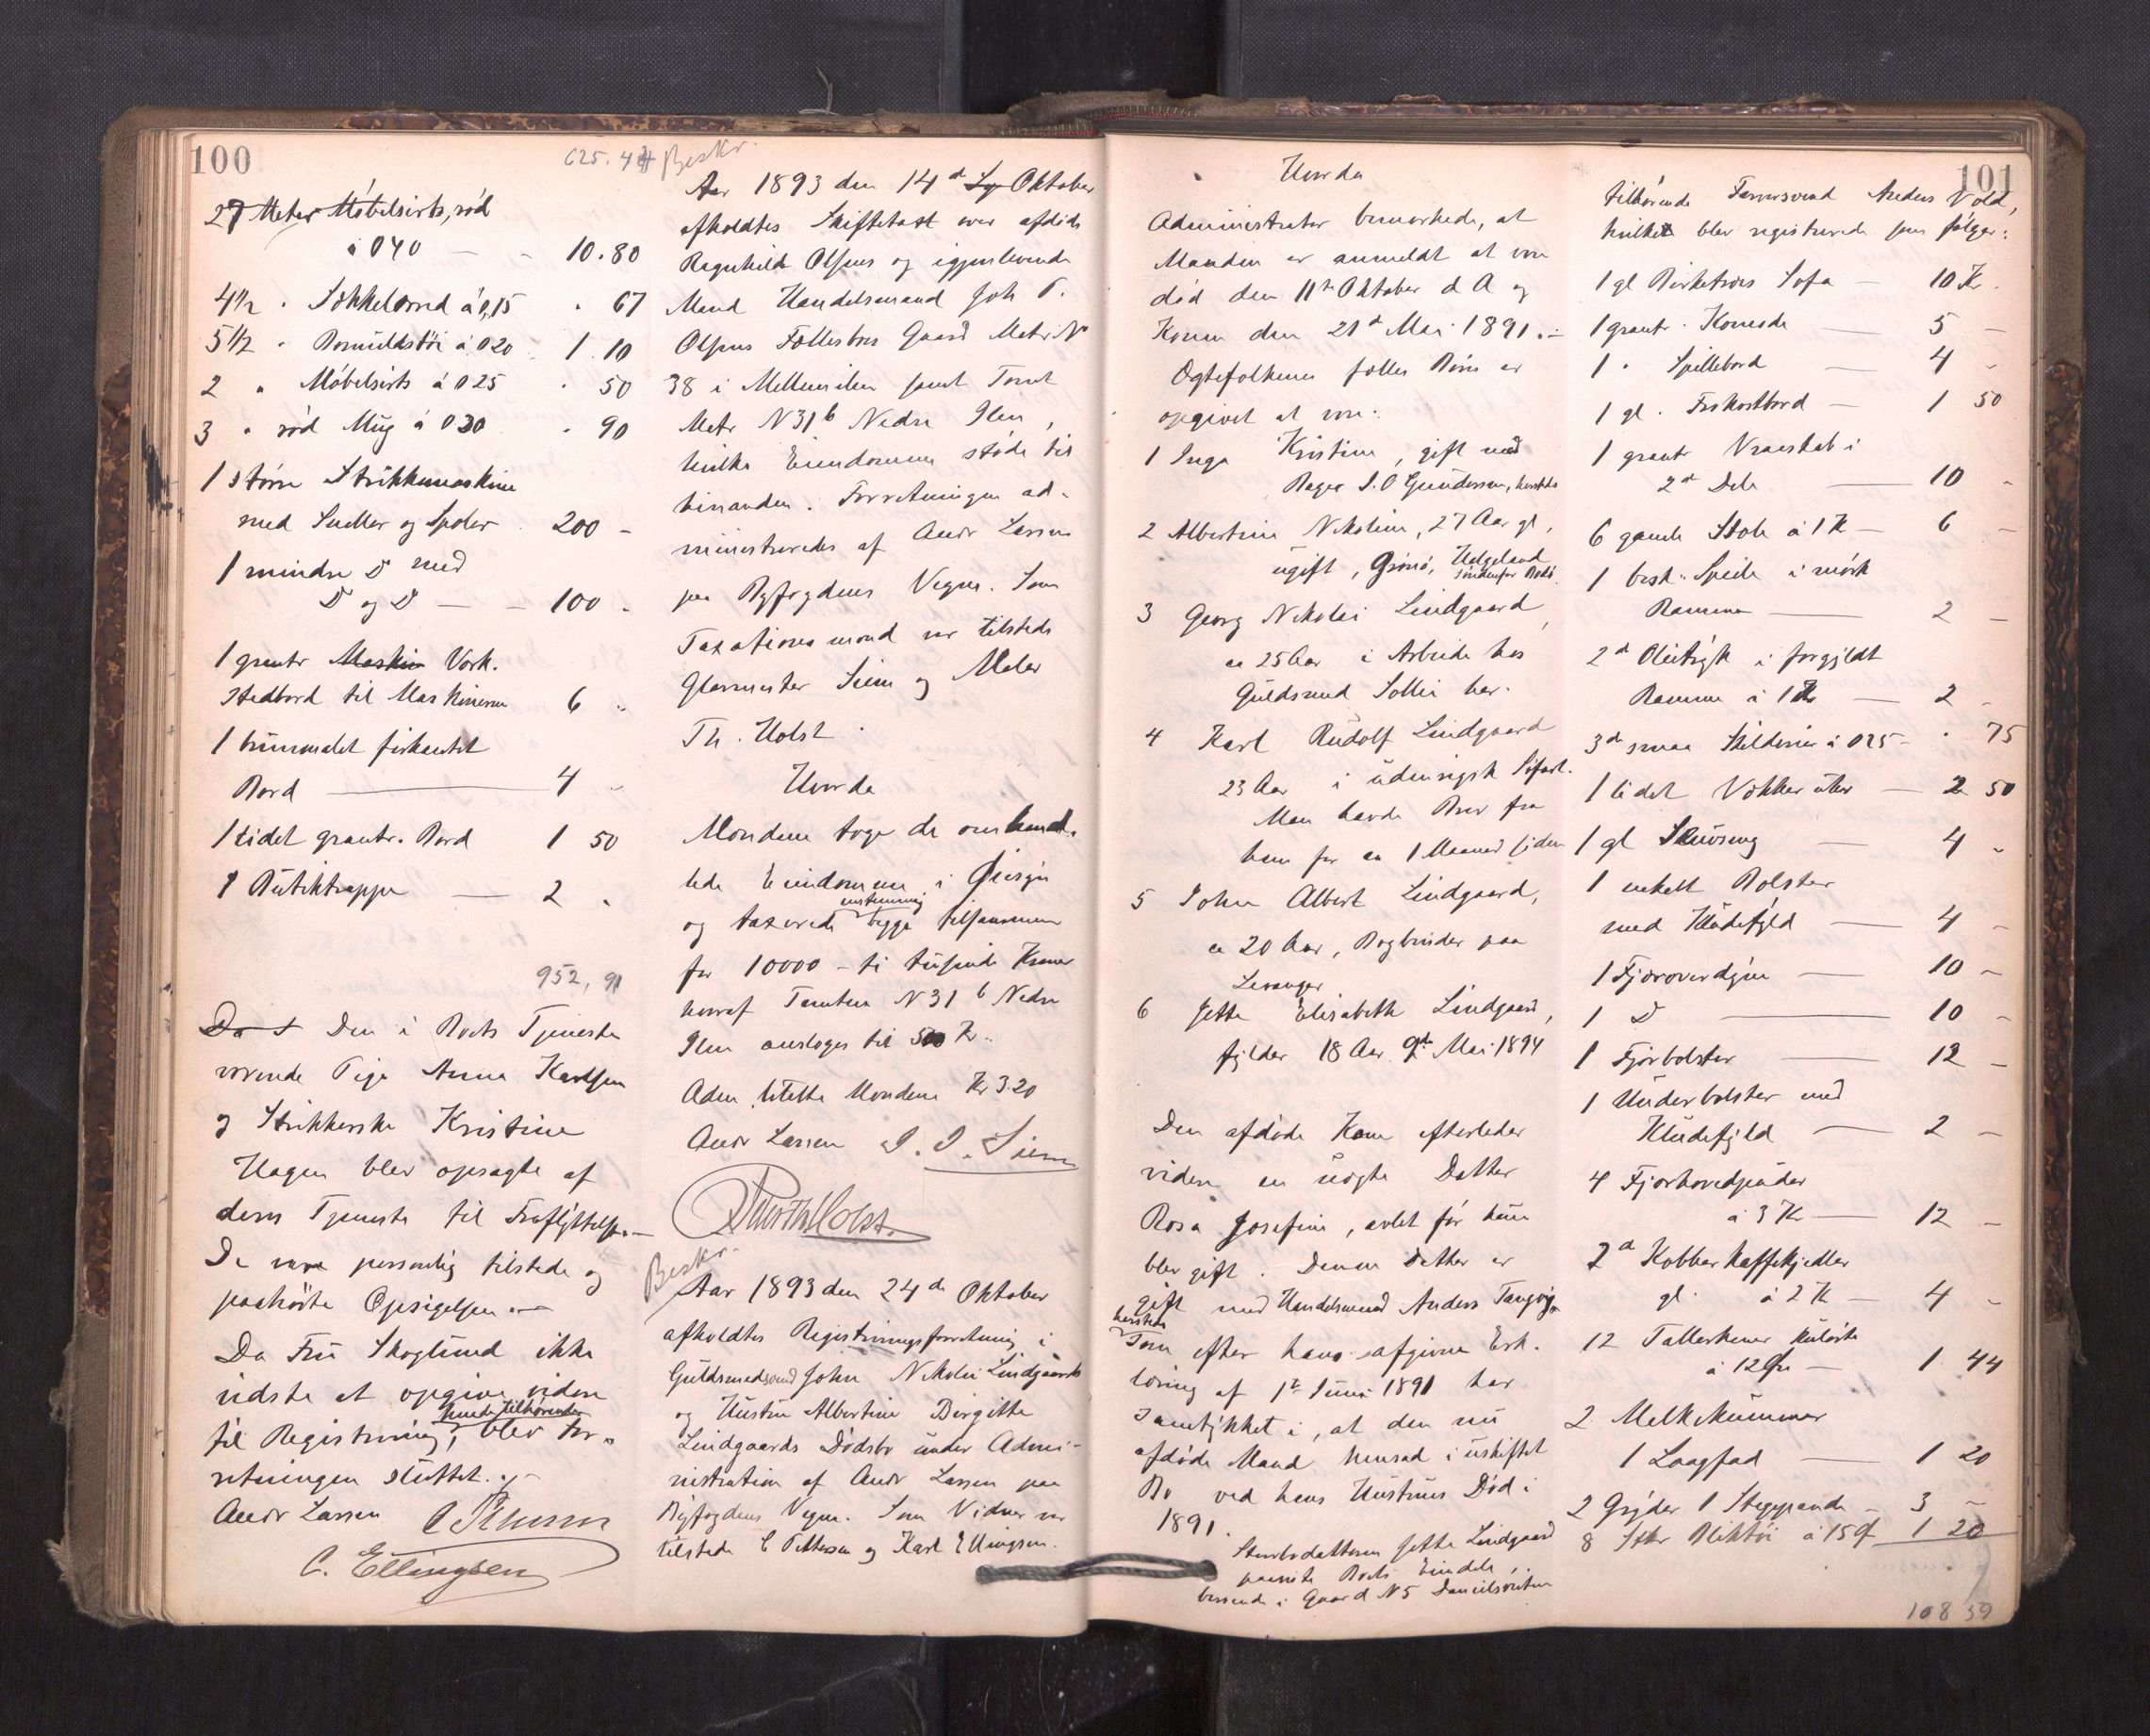 100
625.44
27 Meter Möbelsirts, rød
à 040 — - 10.80
4 1/2 " Sokkelærred à 0,15 " 67
5 1/2 " Bomuldstöi à 020 1.10
2 " Möbelsirts à 025 " 50
3 " rød à 030 " 90
1 större Strikkemaskine
med Sneller og Spoler 200 -
1 mindre D med
D og D — - 100 -
1 grantr Maskin Værk.
stedbord til Maskinerne 6 "
1 brunmalet firkantet
Bord — 4 -
1 lidet grantr. Bord 1 50
1 Butiktrappe — 2 "
952,91
Da Den i Boets Tjeneste
værende Pige Anna Karlsen
og Strikkerske Kristine
Hagen blev opsagte af
deres Tjeneste til Fraflyttelse. —
De vare personlig tilstede og
paahörte Opsigelsen. —
Da Fru Skoglund ikke
vidste at opgive videre
hende tilhörende
til Registrering, blev for-
retningen sluttet. —
Andr Larsen
C. Ellingsen
Beskr.
Aar 1893 den 14d Oktober
afholdtes Skiftetaxt over afdöde
Ragnhild Olsens og igjenlevende
Mand Handelsmand Joh P.
Olsens Fællesboes Gaard Matr N
38 i Mellemilen samt Tomt
Matr N 31 b Nedre Ilen,
hvilke Eiendomme støde til
hinanden. Forretningen ad-
ministreredes af Andr Larsen
paa Byfogdens Vegne. Som
Taxationsmænd var tilstede
Glasmester Siem og Maler
Th. Holst.
Hvorda
Mændene toge de omhand-
lede Eiendomme i Öiesyn
enstemmig
og taxerede begge tilsammen
for 10000 - ti tusinde Kroner
hvoraf Tomten N 31 b Nedre
Ilen ansloges til 500 Kr.
Mændene Kr 3.20
Andr Larsen J. J. Siem
Beskr.
Aar 1893 den 24de Oktober
afholdtes Registreringsforretning i
Guldsmedsvend John Nikolai Lindgaards
og Hustru Albertine Birgitte
Lindgaards Dödsbo under Admi-
nistration af Andr Larsen paa
Byfogdens Vegne. Som Vidner var
tilstede C Pettersen og Karl Ellingsen.
101
Hvorda
Administrator bemærkede, at
Manden er anmeldt at være
død den 11te Oktober d A og
Konen den 21d Mai 1891. —
Ægtefolkenes fælles Börn er
opgivet at være:
1 Inga Kristine, gift med
Bager J. O Gundersen, herstedes
2 Albertine Nikoline, 27 Aar gl,
ugift, Grönö, Helgeland
söndenfor Bodö.
3 Georg Nikolai Lindgaard,
ca 25 Aar i Arbeide hos
Guldsmed Sollie her.
4 Karl Rudolf Lindgaard
23 Aar i udenrigsk Söfart.
Man havde Brev fra
ham for ca 1 Maaned siden
5 John Albert Lindgaard,
ca 20 Aar, Bogbinder paa
Levanger
6 Jette Elisabeth Lindgaard,
fylder 18 Aar 9de Mai 1894
Den afdøde Kone efterlader
videre en uægte Datter
Rosa Josefine, avlet för hun
blev gift. Denne Datter er
gift med Handelsmand Anders Tangvig
herstedes
Som efter hans afgivne Erk-
læring af 1te Juni 1891 har
samtykket i, at den nu
afdöde Mand hensad i uskiftet
Bo ved hans Hustrues Död i
1891.
Stervbodatteren Jette Lindgaard
paaviste Boets Eiendele,
beroende i Gaard N 5 Danielsveiten
tilhörende Farversvend Anders Vold,
hvilket blev registrerede som fölger:
1 gl Birketræs Sofa — 10 Kr.
1 grantr. Komode — 5 —
1 " Spillebord — 4 -
1 gl. Frokostbord — 1 50
1 grantr Vraaskab i
2de Dele — 10 -
6 gamle Stole à 1 Kr — 6 —
1 besk. Speile i mörk
Ramme — 2 —
2d Olietryk i forgyldt
Ramme à 1 Kr — 2 -
3d smaa Skilderier à 025 - " 75
1 lidet Vækkeruhr — 2 50
1 gl Skuvseng — 4 -
1 enkelt Bolster
med Kludefyld — 4 -
1 Fjæroverdyne — 10 -
1 D — 10 -
1 Fjærbolster — 12 —
1 Underbolster med
Kludefyld — 2 —
4 Fjærhovedpuder
à 3 Kr — 12 —
2d Kobberkaffekjedler
gl. à 2 Kr — 4 -
12 Tallerkener kulørte
à 12 Øre — 1. 44
2 Melkekummer
1 Langfad — 1 20
2 Gryder 1 Stegepande — 3 —
8 Stkr Bliktöi à 15 Ø 1 20
108 59